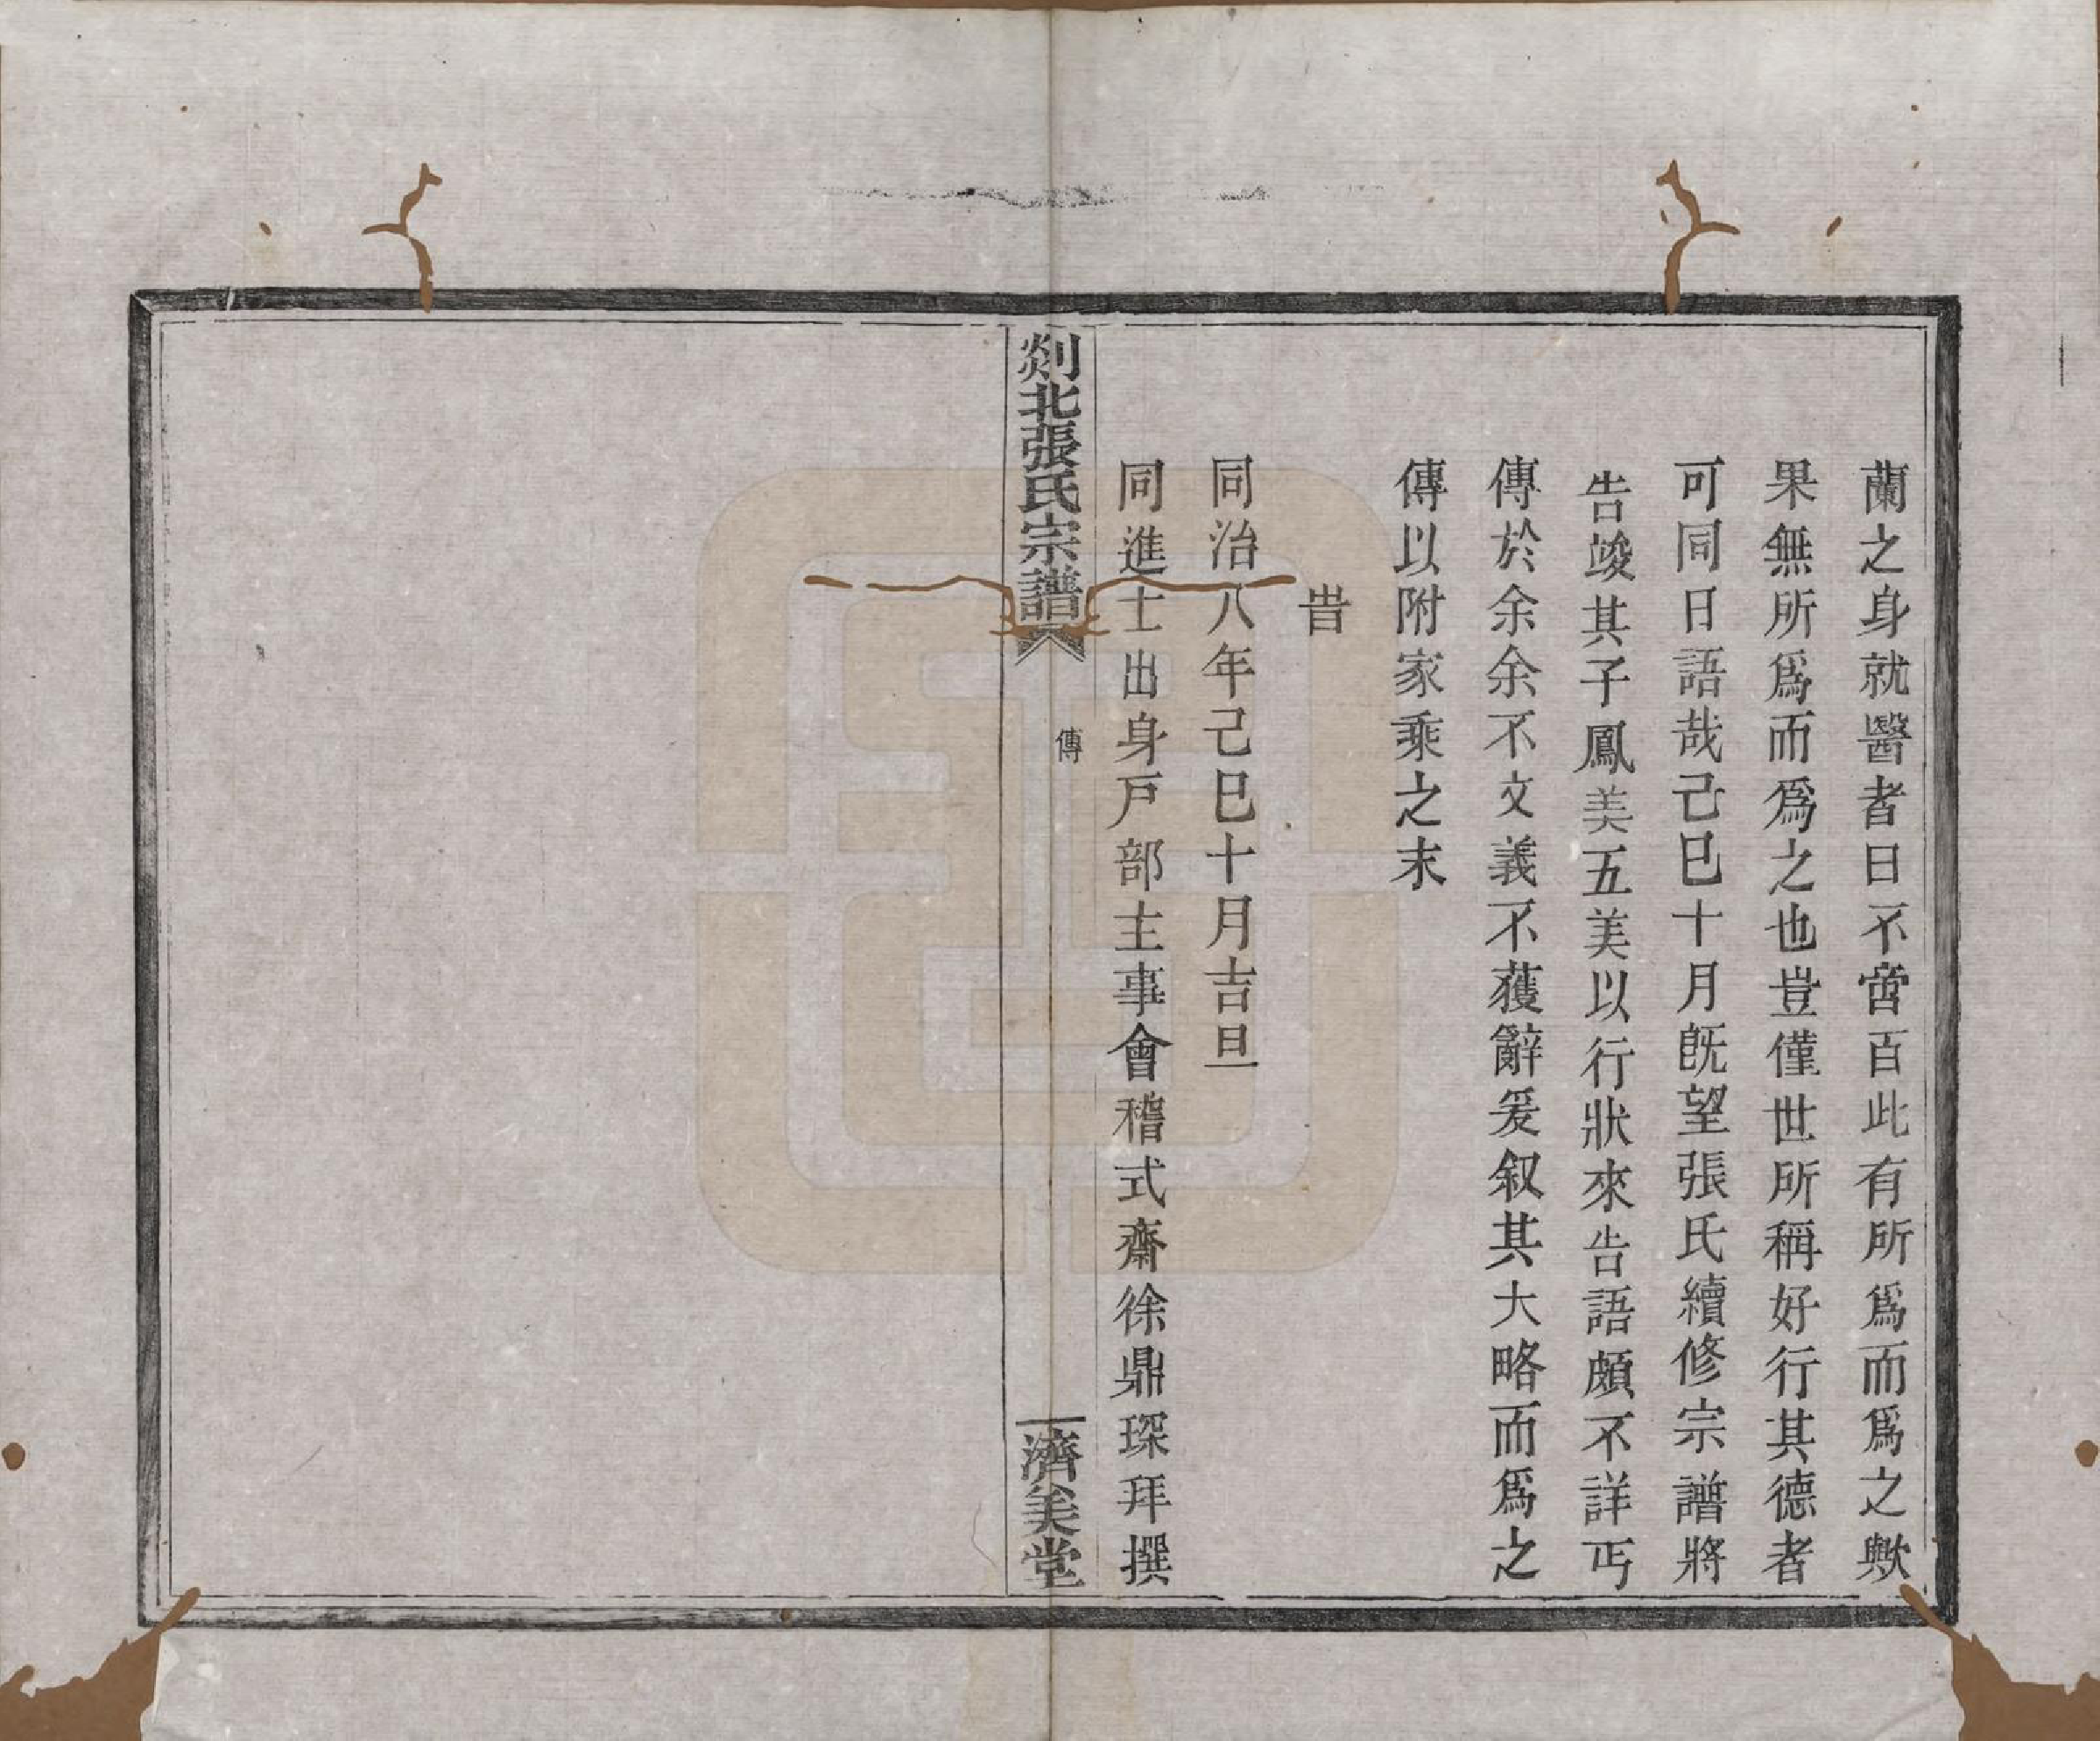 蘭之身就醫者日不啻百此有所爲而爲之歟
果無所爲而爲之也豈僅世所稱好行其德者
可同日語哉己巳十月旣望張氏續修宗譜將
告竣其子鳳美五美以行狀來告語頗不詳丐
傳於余余不文義不獲辭爰叙其大略而爲之
傳以附家乘之末
旹
同治八年己巳十月吉旦
同進士出身戸部主事會稽式齋徐鼎琛拜撰
剡北張氏宗譜
傳
濟美堂